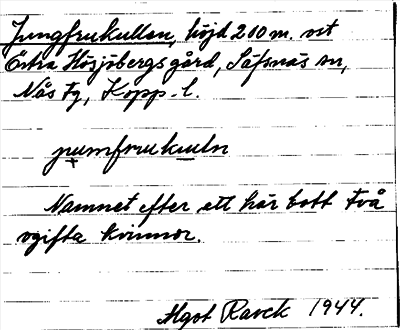 Jungfrukullen, höjd 200 m. ost
Östra Högsjöbergs gård, Säfsnäs sn,
Nås fg, Kopp. l.
jumfrukuuln
Namnet efter att här bott två
ogifta kvinnor.
Algot Ravck 1944.